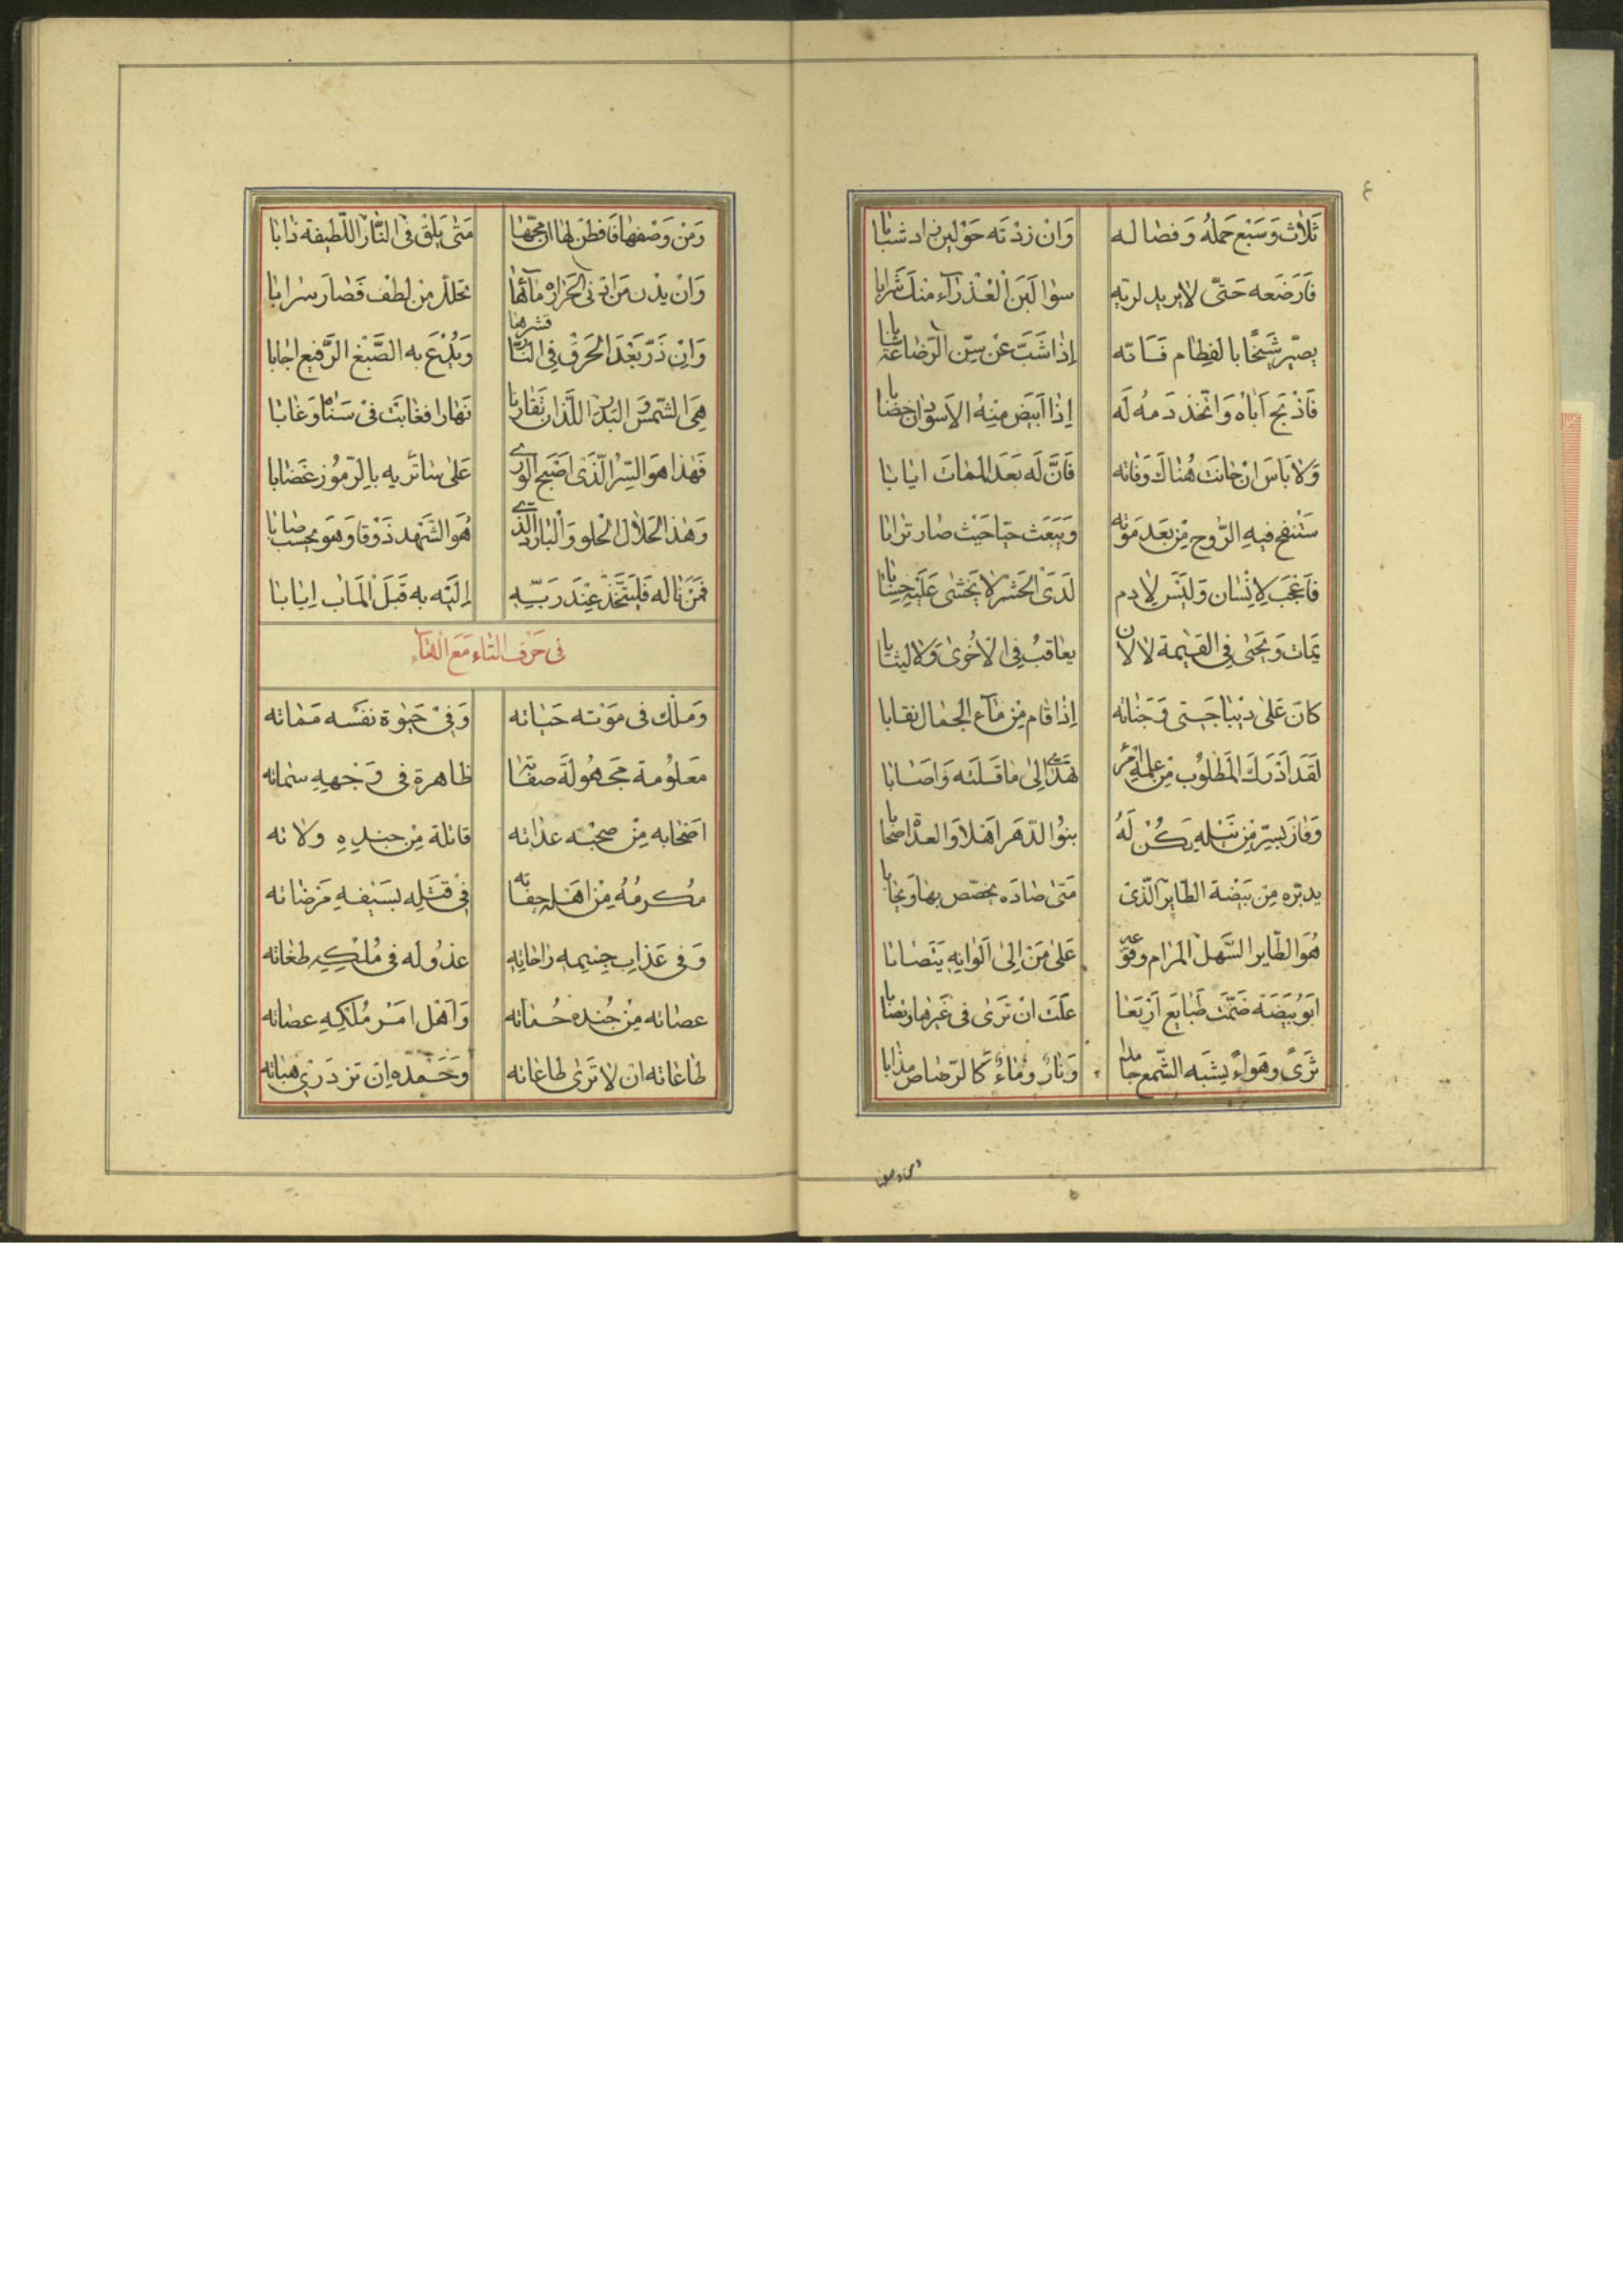 ٤
ثَلاثٌ وَسَبْعٌ حَملُهُ وَفصاله وَانْ زدْتَه حَوْلين زاد شبابا
فَارَضَعه حَتّى لا يريد لريّه سوا لَبَن الْعَذراء منكَ شَرابا
يصيّر شَيخًا بالفِطام فَانّه إذا شَبَّ عَنْ سِنّ الرّضاعَة
فَاذْبَح اَباه وَاتّخذ دَمهُ لَه إذا ابيَض منهُ الاَسودان خضابا
وَلا بَاسَ انْ حانَت هُناكَ وَفاته فَانَّ لَه بَعَد المماتَ ايابا
سَتنْفخ فيهِ الرّوح مِن بَعَد مَوْته وَيَبعَث حيّا حَيْث صار ترابا
فاَعْجَب لاِنْسان وَلَيْسَ لاِدم لَدَى الحَشر لا يَخْشى عَلَيْه حِسابا
يمات وَيَحْيى فِي القيمة لا لاَن يعاقبُ فِي الاُخْرىٰ وَلا ليثابا
كانَ عَلى ديباجَتى وَجَناته إذا قام مِن مآء الجمال نقابا
لَقَد اَدْرَكَ المَطلوُب مِن عِلمه امْرُ هَدىٰ الىٰ ما قَلته وَاصَابا
وَفازَ بسِرّ مِن نَيْله يَكُنْ لَهُ بنوُ الدّهَر اَهْلا وَالعدْا اصْحابا
يدبّره مِن بَيْضة الطّاير الّذى مَتىٰ صَادَه يخصّص بها وَيحابا
هُوَ الطّاير السّهل المَرام وَقوعه عَلىٰ مَنْ الىٰ اَلْوانِه يَتَصابا
ابَوُ بَيْضَة ضَمَّت طَبايع اَرْبَعا عَلَت انْ تَرىٰ فى غَيْرها وَنصابا
ثَرَىً وَهَواءً يشبَه الشّمع جامدا وَنارٌ وَماءٌ كَالرّصاص مذابا
وَمَنْ وَصْفها فَافطن لها ان مخّها مَتىٰ يَلق فى النّار اللّطيفة ذابا
وَانْ يدْن مَن ادنى الحَرارة مآئها تحلّل من لطف فَصار سرابا
وَانِ ذَرّ بَعْدَ الحَرق فِي النّار قشرها وَيُدْعَ به الصَّبْغ الرَّفيع اجابا
هِىَ الشّمس وَالبَدر اللّذان تقارنا نَهارا فغابَت فىْ سَناه وَغابا
فَهٰذا هوَ السِّرّ الّذى اصْبَح الورىٰ عَلىٰ ساتريه بالرّموُز غضابا
وَهٰذا الحَلال الحلو وَالْبارد الّذى هُوَ الشَهْد ذَوْقا وَهوَ يحسب صابا
فمَنْ ناله فَليتّخذْ عِنْدَ رَبّه اِلَيْه به قَبَل المَاب اِيابا
فى حَرْف التاء مَعَ الهاء
وَملك فى مَوْته حَياته وَفىْ حيوٰة نَفسه مَماته
مَعلوُمة مَجهُولَة صفاته ظاهرة فى وَجهِهِ سماته
اصْحابه مِنْ صحبه عداته قاتلة مِن جندِهِ ولاته
مُكرمُهُ مِنْ اهَله جفاته فِىْ قتله بسَيْفِهِ مَرْضاته
وَفى عَذاب جِسمه راحاته عذوُله فى مُلْكِه طغاته
عصاته مِنْ جُنده حُماته وَاَهْل امَر مُلكِهِ عصاته
طاعاته ان لا تَرىٰ طاعاته وَحَمده اِنَ تزدَرىٰ هباته